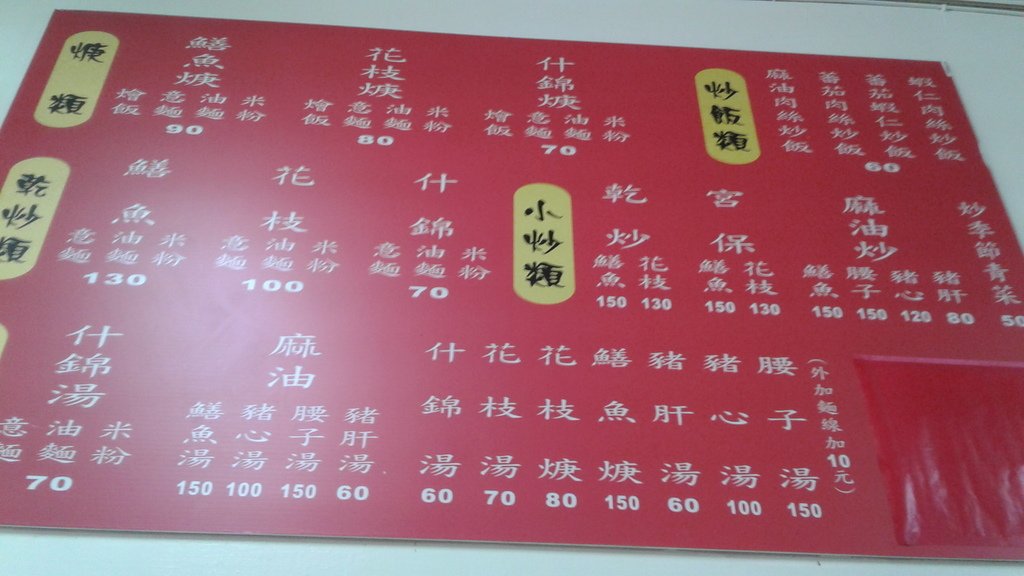 焿類
鱔魚焿
燴飯 意麵 油麵 米粉
90
花枝焿
燴飯 意麵 油麵 米粉
80
什錦焿
燴飯 意麵 油麵 米粉
70
炒飯類
麻油肉絲炒飯
蕃茄肉絲炒飯
蕃茄蝦仁炒飯
蝦仁肉絲炒飯
60
乾炒類
鱔魚
意麵 油麵 米粉
130
花枝
意麵 油麵 米粉
100
什錦
意麵 油麵 米粉
70
小炒類
乾炒
鱔魚 150
花枝 130
宮保
鱔魚 150
花枝 130
麻油炒
鱔魚 150
腰子 150
豬心 120
豬肝 80
炒季節青菜 50
什錦湯
意麵 油麵 米粉
70
麻油
鱔魚湯 150
豬心湯 100
腰子湯 150
豬肝湯 60
什錦湯 60
花枝湯 70
花枝焿 80
鱔魚焿 150
豬肝湯 60
豬心湯 100
腰子湯 150
(外加麵線加10元)